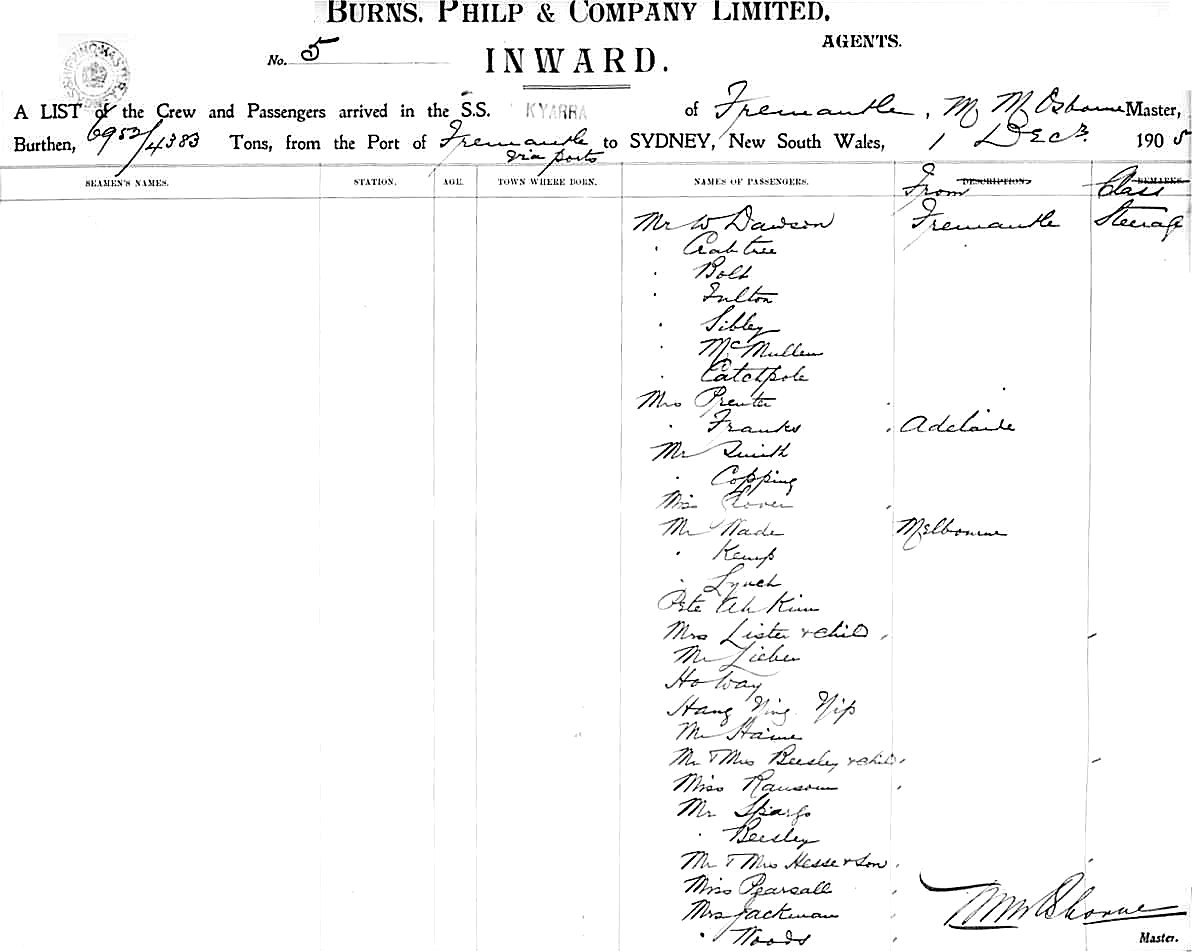 BURNS, PHILP & COMPANY LIMITED,
AGENTS.
No. 5
INWARD.
A LIST of the Crew and Passengers arrived in the S.S. KYARRA of Fremantle, M M Osborne Master,
Burthen, 6952/4383 Tons, from the Port of Fremantle via ports to SYDNEY, New South Wales, 1 Dec 1905
SEAMEN'S NAMES. STATION. AGE. TOWN WHERE BORN. NAMES OF PASSENGERS. From DESCRIPTION. Class REMARKS.
Mr W Dawson Fremantle Steerage
Crabtree
Bolt
Fulton
Sibley
McMullen
Catchpole
Mrs Prenter
Franks Adelaide
Mr Smith
Copping
Miss Glover
Mr Wade Melbourne
Kemp
Lynch
Pete Ah Kim
Mrs Lister & child
Mr Lieber
Ho Way
Hang Ning Yip
Mr Haime
Mr & Mrs Beesley & child
Miss Ransom
Mr Spargo
Beesley
Mr & Mrs Hesse & Son
Miss Pearsall
Mrs Jackman
Woods
M M Osborne
Master.